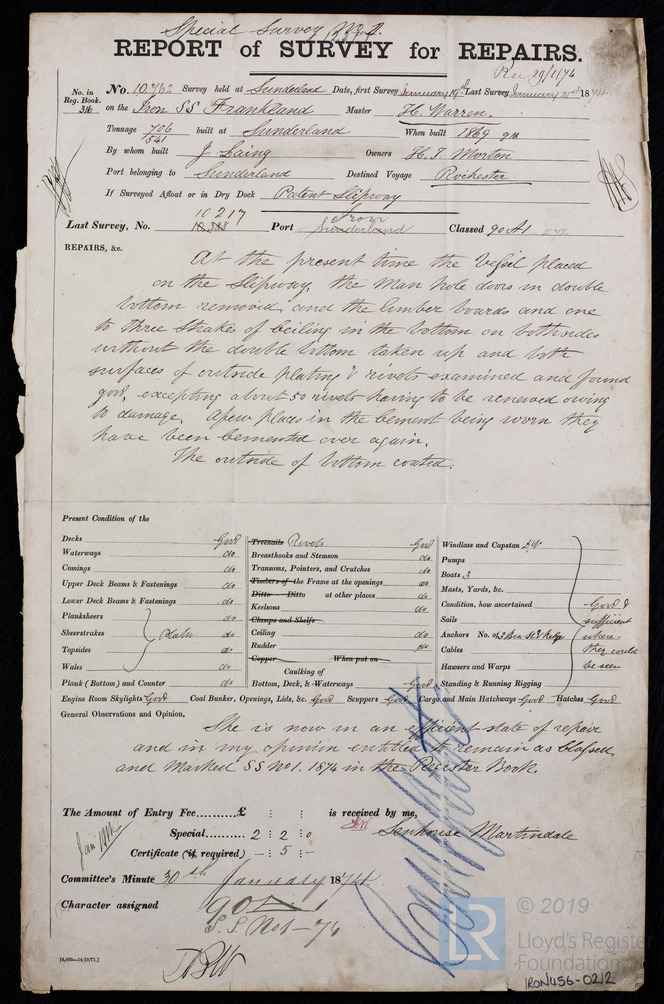 Special Survey No 1.
REPORT of SURVEY for REPAIRS.
Rec 29/1/74
No. in Reg. Book. 316
No. 10762 Survey held at Sunderland Date, first Survey January 19th Last Survey January 21st 1874
on the Iron SS Frankland Master H. Warren.
Tonnage 706/541 built at Sunderland When built 1869
By whom built J Laing Owners H. T. Morton
Port belonging to Sunderland Destined Voyage Rochester
If Surveyed Afloat or in Dry Dock Patent Slipway
Last Survey, No. 10217 Port Sunderland Classed 90 A1
REPAIRS, &c.
At the present time the Vessel placed
on the Slipway, the man hole doors in double
bottom removed, and the limber boards and one
to three strakes of ceiling in the bottom on both sides
without the double bottom taken up and both
surfaces of outside plating & rivets examined and found
good, excepting about 50 rivets having to be renewed owing
to damage. A few places in the cement being worn they
have been cemented over again.
The outside of bottom coated.
Present Condition of the
Decks Good
Waterways do
Comings do
Upper Deck Beams & Fastenings do
Lower Deck Beams & Fastenings do
Planksheers do
Sheerstrakes Plates do
Topsides do
Wales do
Plank (Bottom) and Counter do
Treenails Rivets Good
Breasthooks and Stemson do
Transoms, Pointers, and Crutches do
Timbers of the Frame at the openings do
Ditto Ditto at other places do
Keelsons do
Clamps and Shelfs
Ceiling do
Rudder do
Copper When put on
Caulking of
Bottom, Deck, & Waterways Good
Windlass and Capstan
Pumps
Boats 3
Masts, Yards, &c.
Condition, how ascertained
Sails
Anchors No. of 3 Bn St & Kedge
Cables
Hawsers and Warps
Standing & Running Rigging
Good &
sufficient
where
they could
be seen
Engine Room Skylights Good Coal Bunker, Openings, Lids, &c. Good Scuppers Good Cargo and Main Hatchways Good Hatches Good
General Observations and Opinion,
She is now in an efficient state of repair
and in my opinion entitled to remain as Classed
and Marked SS No 1. 1874 in the Register Book.
The Amount of Entry Fee..........£ : : is received by me,
Special.......... 2 : 2 : 0
Senhouse Martindale
Certificate (if required) — : 5 : —
Committee's Minute 30th January 1874.
Character assigned 90 A1
S.S. No 1–74
[6,000—14/10/71.]
LR
© 2019
Lloyd's Register
Foundation
IRON456-0212